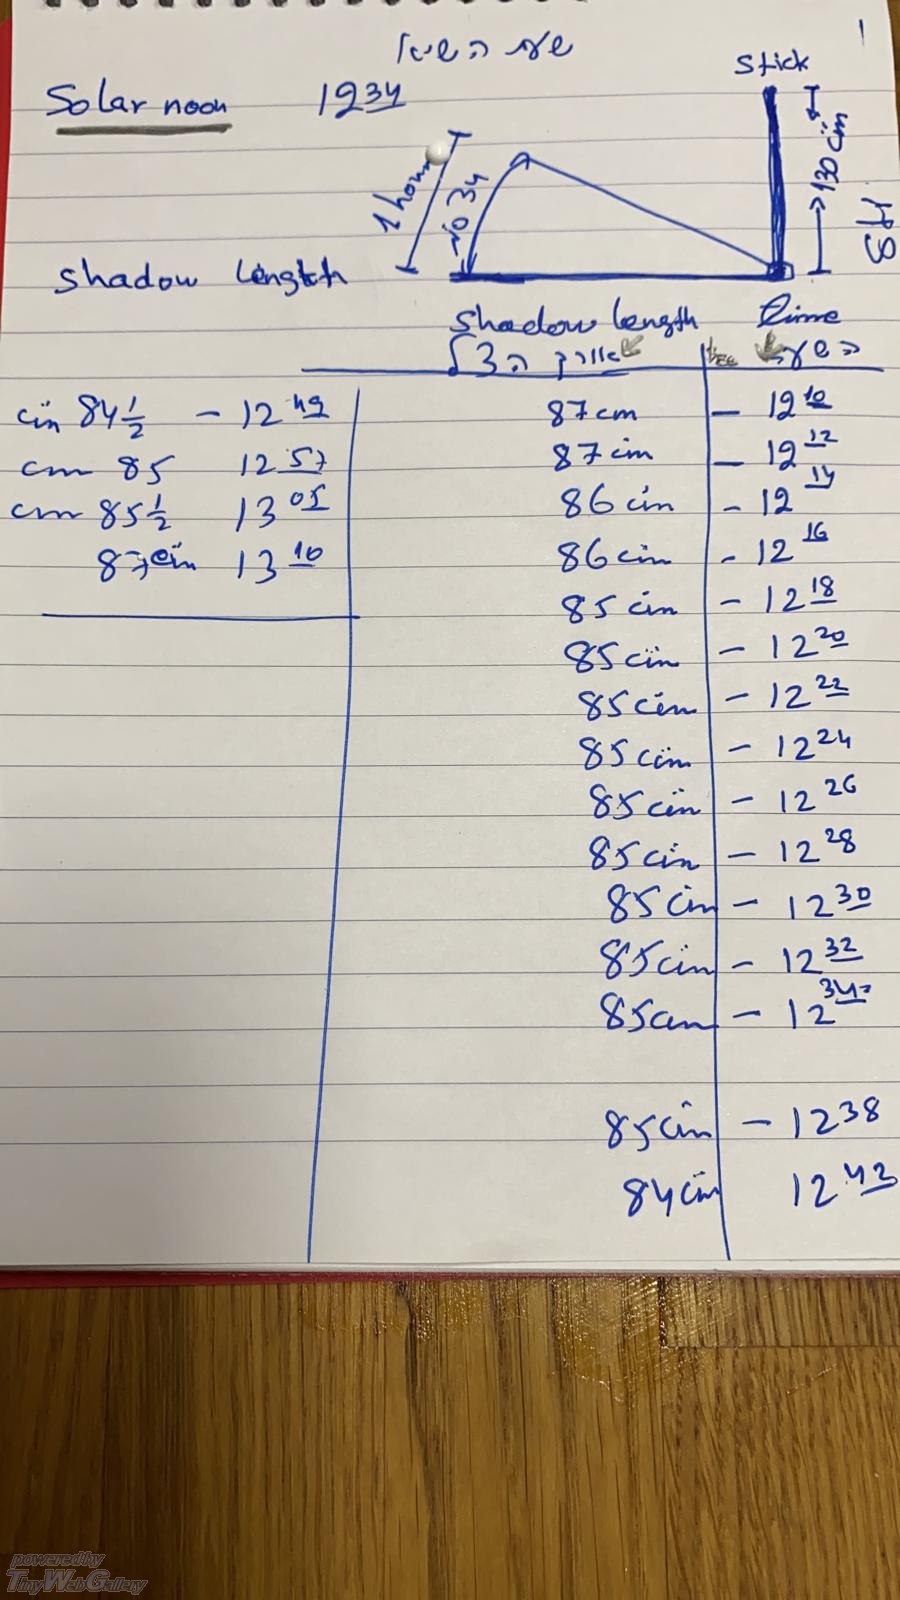 שם השיא
1
Solar noon 12 34
Stick
130 cm
1 hour
34
Shadow Length
Shadow length time
אורך הצל השעה
87 cm – 12 10
87 cm – 12 12
86 cm - 12 14
86 cm - 12 16
85 cm - 12 18
85 cm – 12 20
85 cm – 12 22
85 cm – 12 24
85 cm – 12 26
85 cm – 12 28
85 cm – 12 30
85 cm – 12 32
85 cm – 12 34
85 cm – 12 38
84 cm 12 43
cm 84 1/2 – 12 49
cm 85 12 57
cm 85 1/2 13 05
87 cm 13 10
powered by
TinyWebGallery